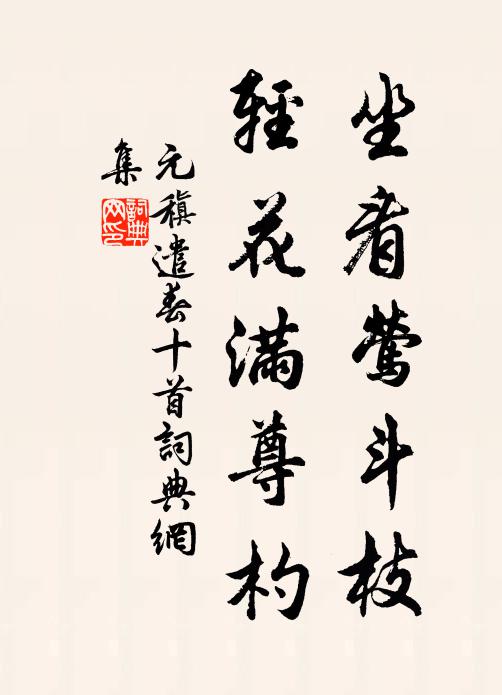 坐看鶯斗枝
輕花滿尊杓
元稹遣春十首詞典網
集
詞典
网印